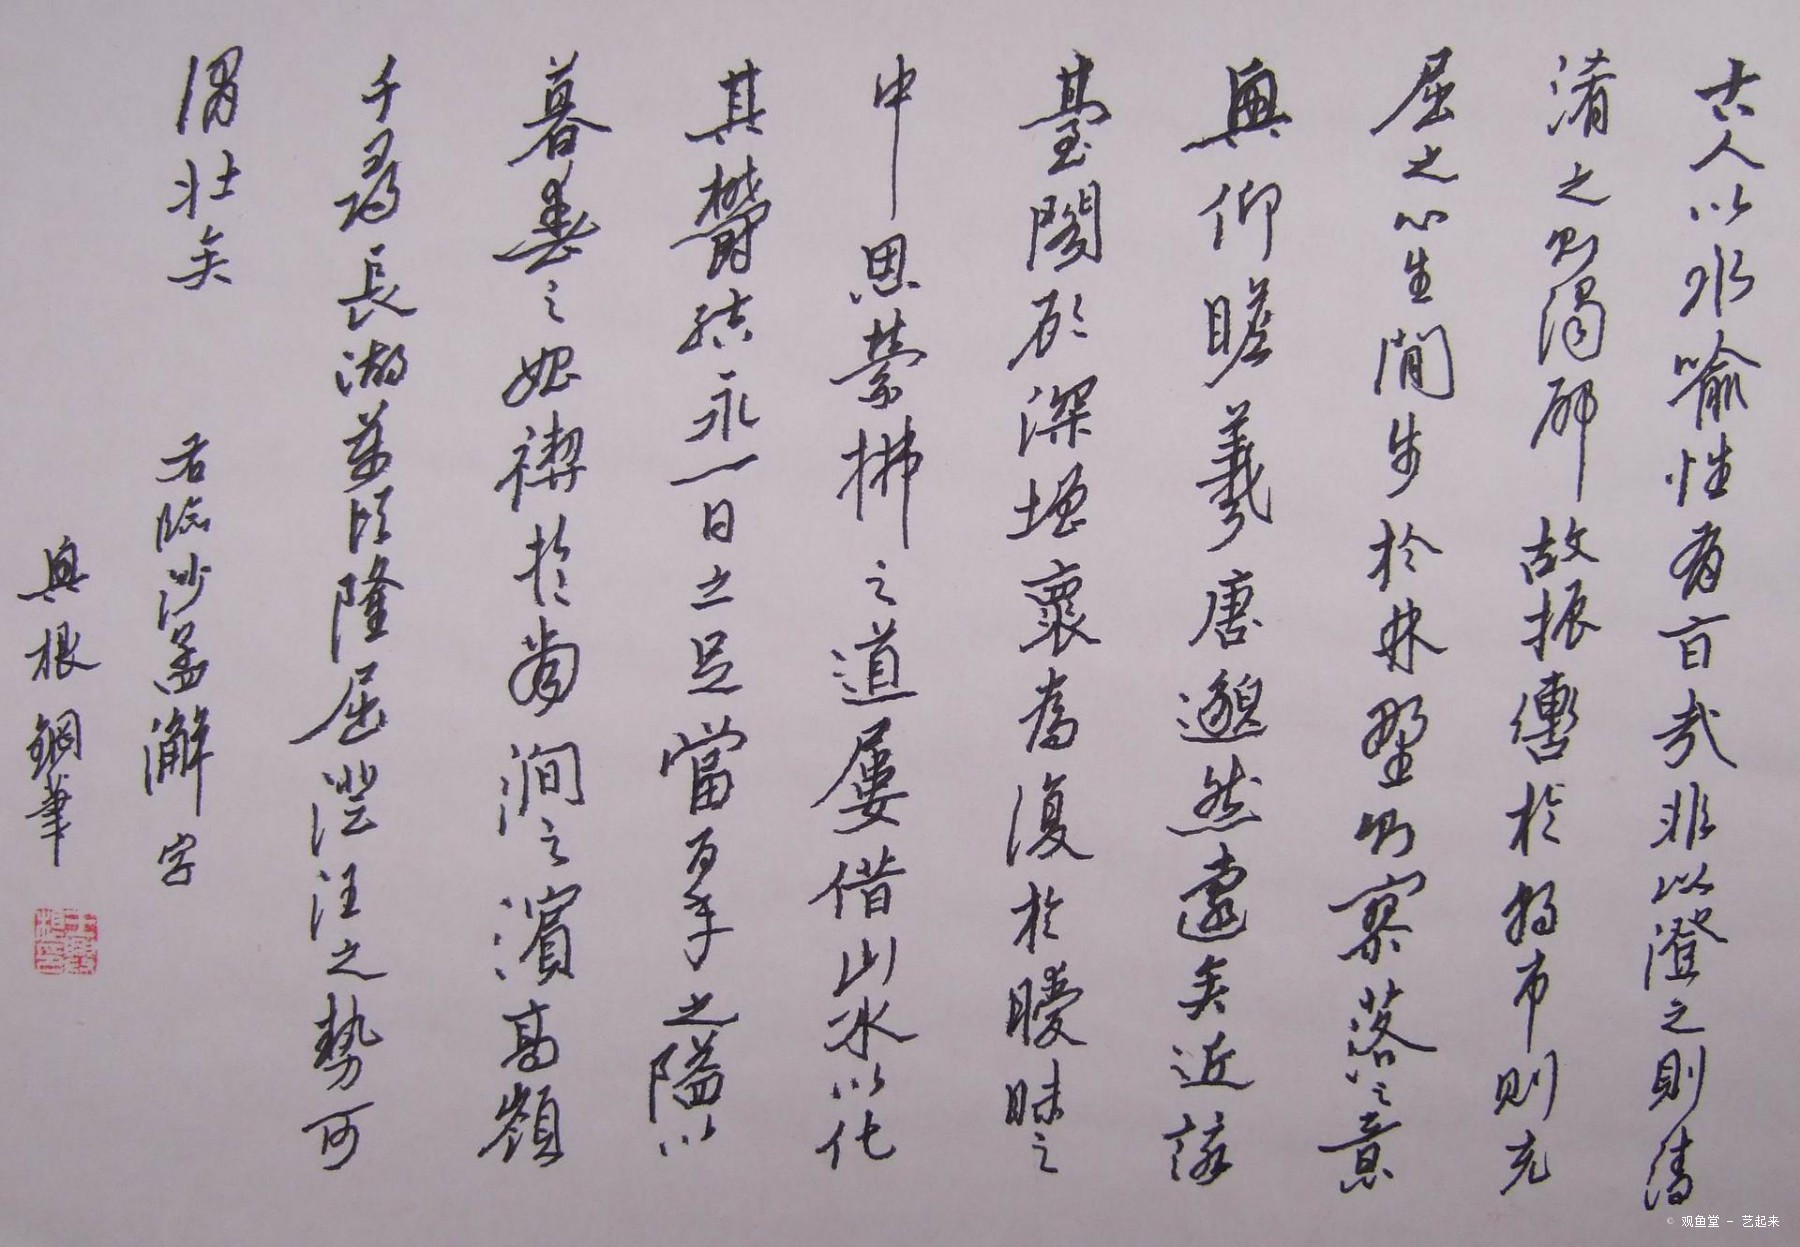 古人以水喻性有旨哉非以澄之則清
淆之則濁邪故振轡於朝市則充
屈之心生閒步於林野則寥落之意
興仰瞻羲唐邈然遠矣近詠
臺閣顧深增懷為復於曖昧之
中思縈拂之道屢借山水以化
其鬱結永一日之足當百年之隘以
暮春之始禊於南澗之濱高嶺
千尋長湖萬頃隆屈澄汪之勢可
謂壯矣 右臨沙孟海字
興根鋼筆
© 观鱼堂 - 艺起来